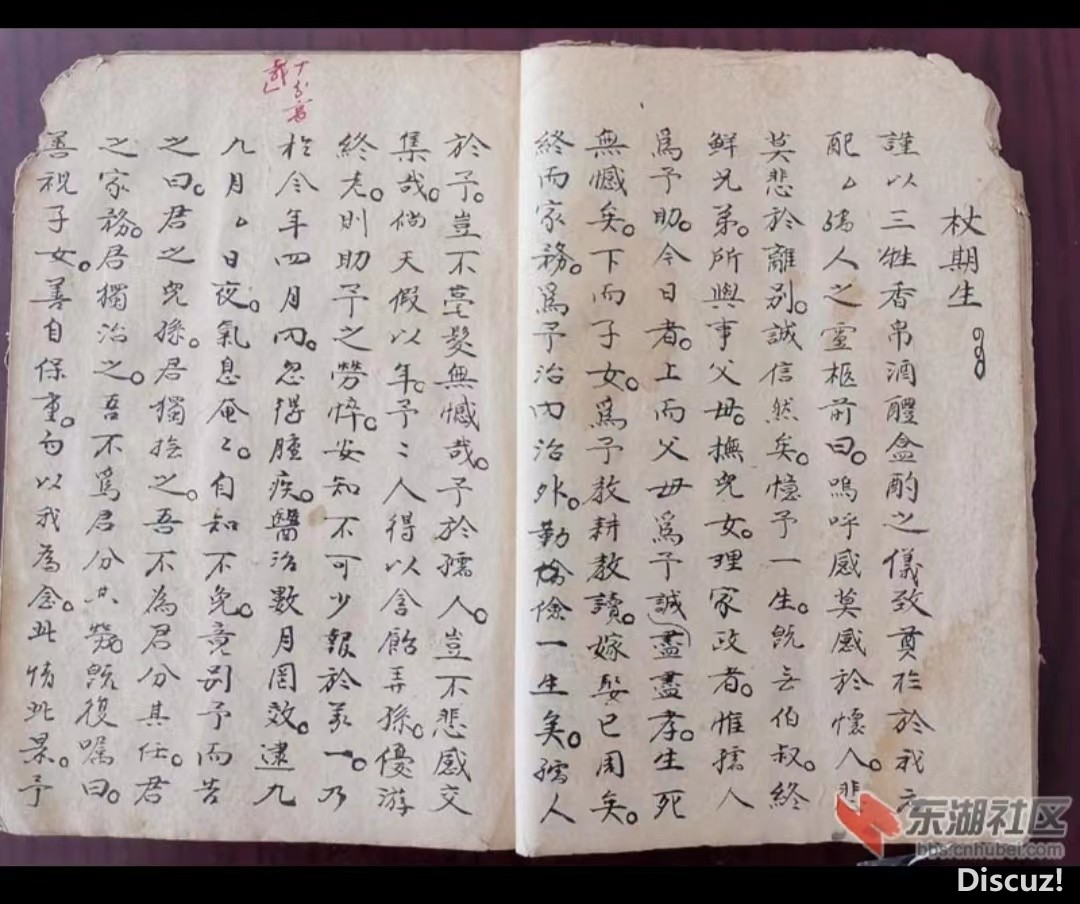 杖期生
謹以三牲香帛酒醴盒酌之儀致奠於我元
配厶孺人之靈柩前曰。嗚呼感莫感於懷人。悲
莫悲於離別。誠信然矣。憶予一生。既無伯叔。終
鮮兄弟。所與事父母。撫兒女。理家政者。惟孺人
為予助。今日者。上而父母為予誠盡盡孝。生死
無憾矣。下而子女。為予教耕教讀。嫁娶已周矣。
終而家務。為予治內治外。勤儉一生矣。孺人
於予。豈不毫髮無憾哉。予於孺人。豈不悲感交
集哉。倘天假以年。予二人得以含飴弄孫。優游
終老。則助予之勞悴。安知不可少報於萬一。乃
於今年四月內。忽得腫疾。醫治數月罔效。逮九
九月厶日夜。氣息奄奄。自知不免。竟別予而告
之曰。君之兒孫。君獨撫之。吾不為君分其任。君
之家務。君獨治之。吾不為君分其勞。既復囑曰。
善視子女。善自保重。勿以我為念。此情此景。予
东湖社区
bbs.cnhubei.com
Discuz!